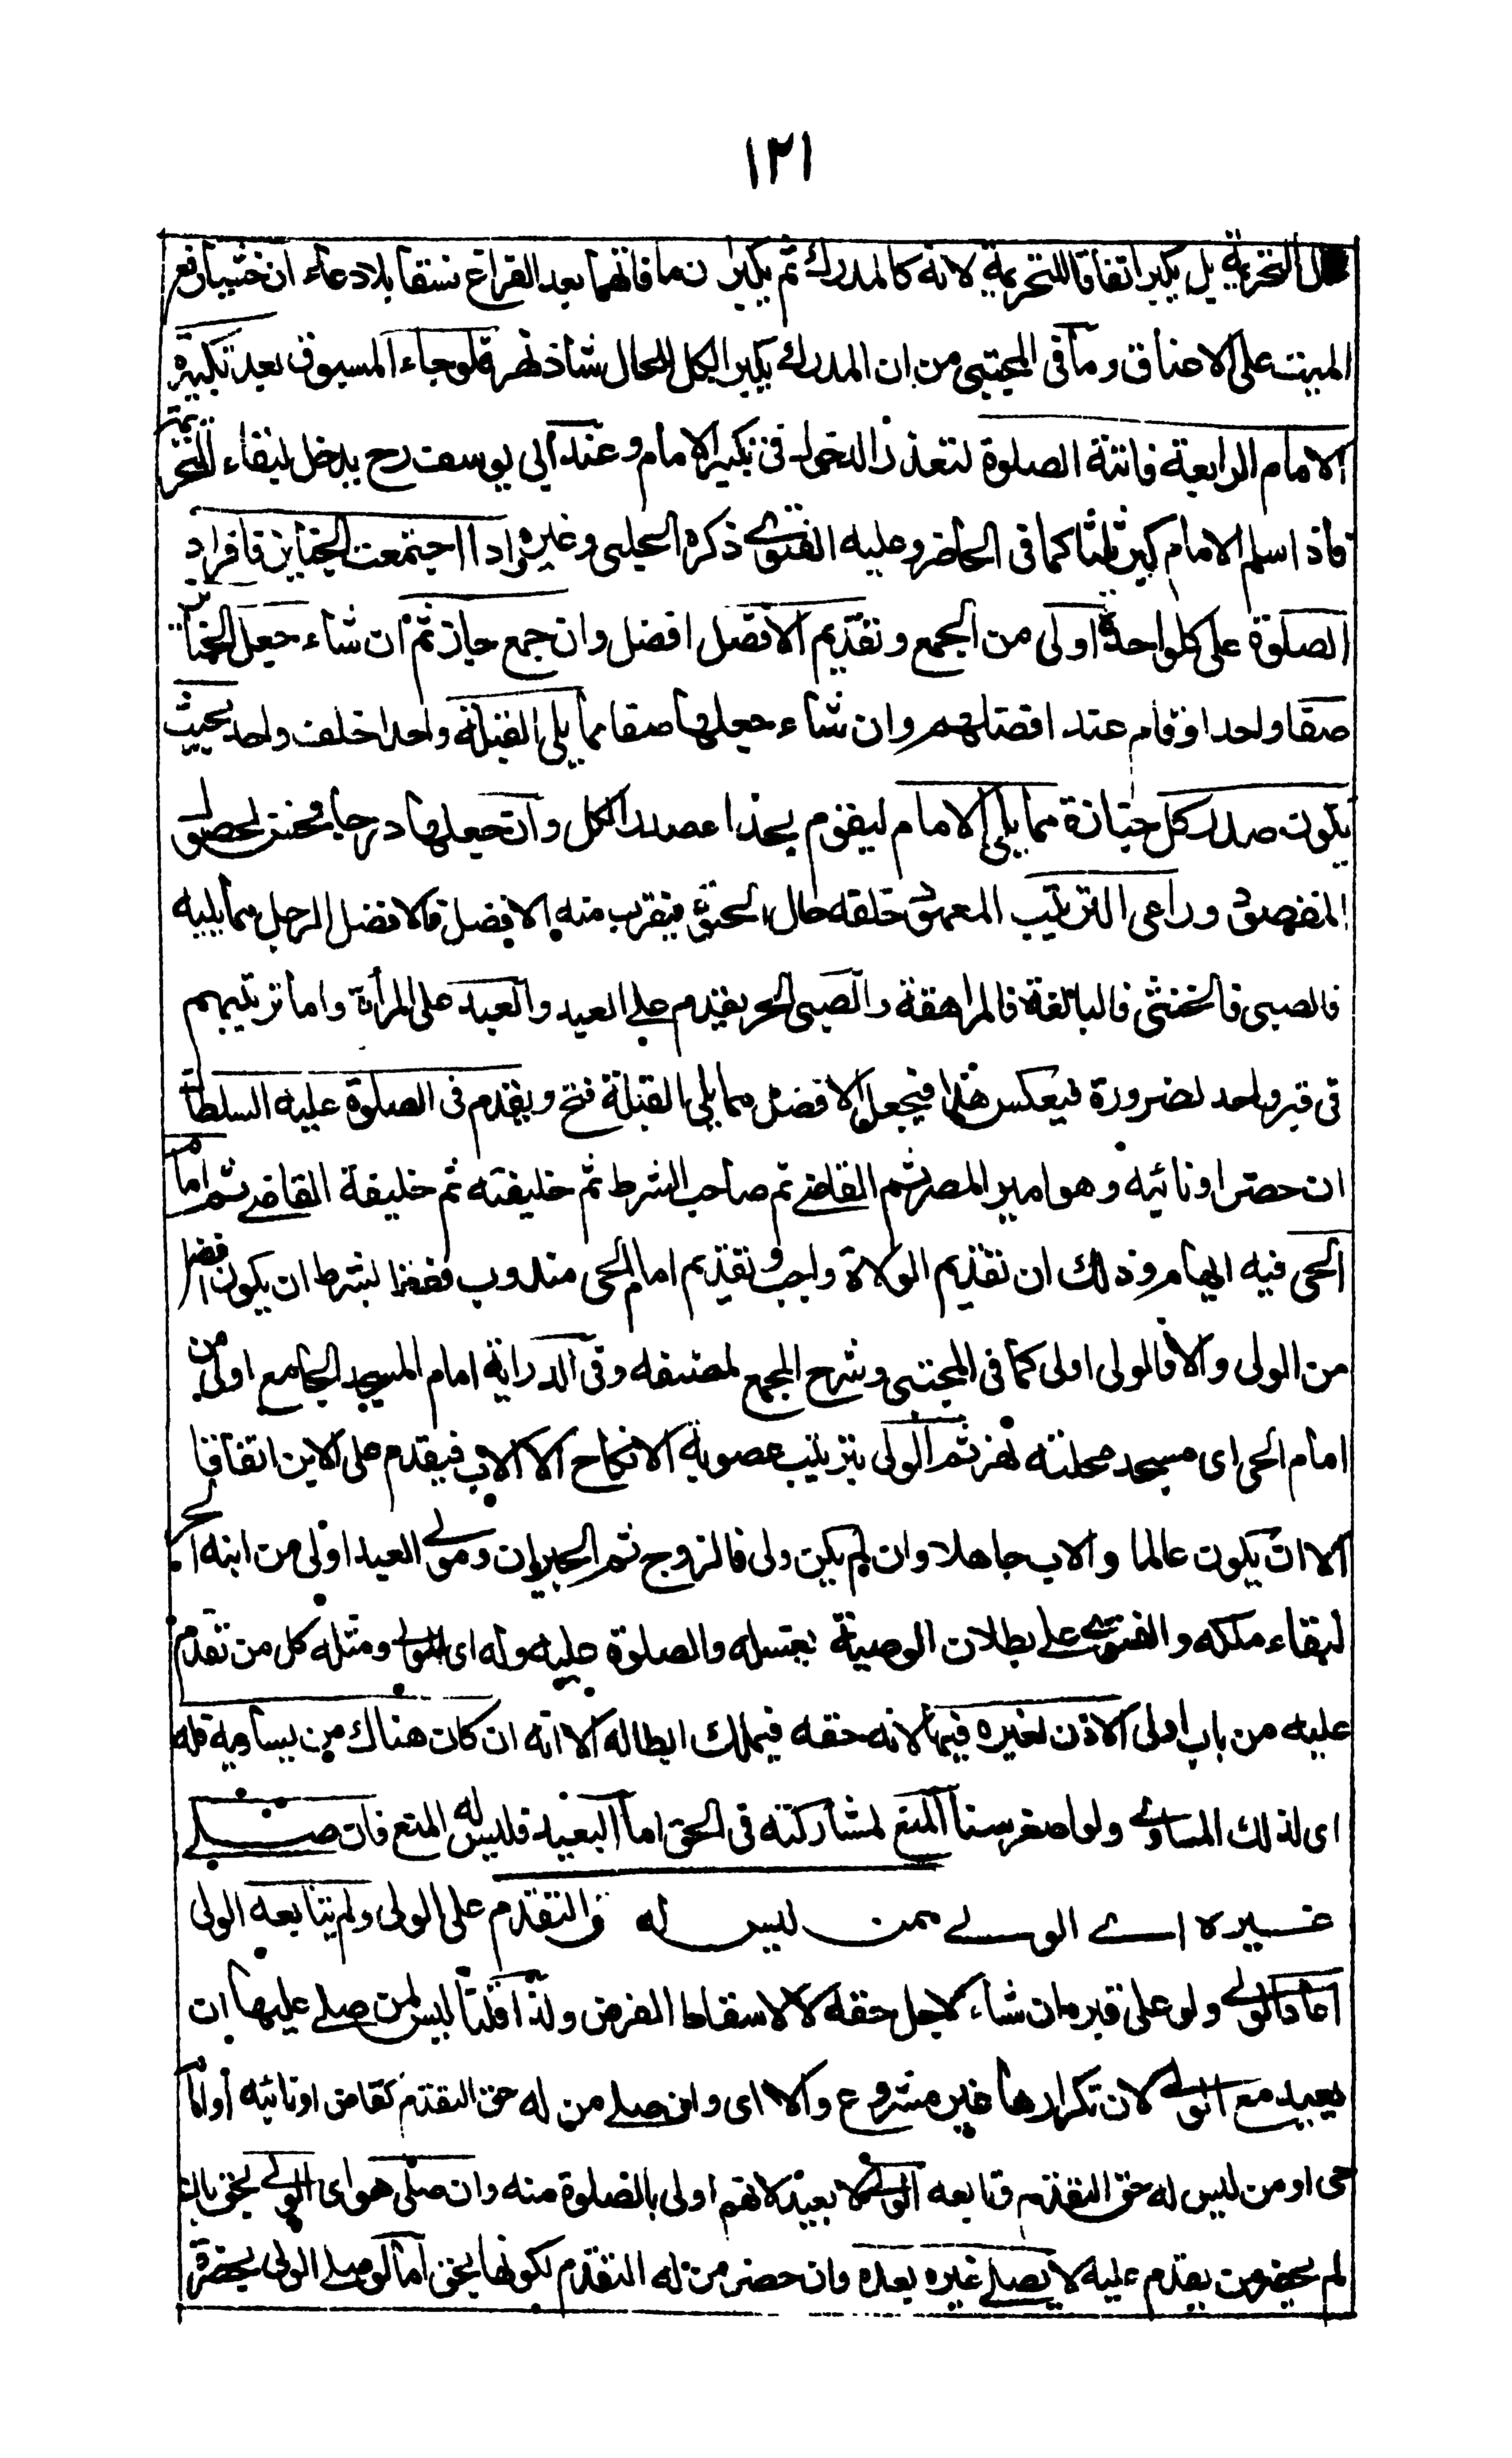 ١٢١
حال التحريمة بل يكبر اتفاقا للتحريمة لانه كالمدرك ثم يكبران ما فاتهما بعد الفراغ نسقا بلا دعاء ان خشيا رفع
الميت على الاعناق وما فى المجتبى من ان المدرك يكبر الكل للحال شاذ نهر فلو جاء المسبوق بعد تكبيرة
الامام الرابعة فاتته الصلوة لتعذر الدخول فى تكبير الامام وعند ابى يوسف رح يدخل لبقاء التحريمة
فاذا سلم الامام كبر ثلثا كما فى الحاضر وعليه الفتوى ذكره الحلبى وغيره واذا اجتمعت الجنايز فافراد
الصلوة على كل واحدة اولى من الجمع وتقديم الافضل افضل وان جمع جاز ثم ان شاء جعل الجنائز
صفا واحدا وقام عند افضلهم وان شاء جعلها صفا مما يلى القبلة واحدا خلف واحد بحيث
يكون صدر كل جنازة مما يلى الامام ليقوم بحذاء صدر الكل وان جعلها درجا فحسن لحصول
المقصود وراعى الترتيب المعهود خلفه حال الحيوة فيقرب منه الافضل فالافضل الرجل مما يليه
فالصبى فالخنثى فالبالغة فالمراهقة والصبى الحر يقدم على العبد والعبد على المرأة واما ترتيبهم
فى قبر واحد لضرورة فبعكس هذا فيجعل الافضل مما يلى القبلة فتح ويقدم فى الصلوة عليه السلطان
ان حضر او نائبه وهو امير المصر ثم القاضى ثم صاحب الشرط ثم خليفته ثم خليفة القاضى ثم امام
الحى فيه ايهام وذلك ان تقديم الولاة واجب وتقديم امام الحى مندوب فقط بشرط ان يكون افضل
من الولى والا فالولى اولى كما فى المجتبى وشرح المجمع لمصنفه وفى الدراية امام المسجد الجامع اولى من
امام الحى اى مسجد محلته نهر ثم الولى بترتيب عصوبة الانكاح الا الاب فيقدم على الابن اتفاقا
الا ان يكون عالما والاب جاهلا وان لم يكن ولى فالزوج ثم الجيران ومولى العبد اولى من ابنه الحر
لبقاء ملكه والفتوى على بطلان الوصية بغسله والصلوة عليه وله اى الولى ومثله كل من تقدم
عليه من باب اولى الاذن لغيره فيها لانه حقه فيملك ابطاله الا انه ان كان هناك من يساويه فله
اى لذلك المساوى ولو اصغر سنا المنع لمشاركته فى الحق اما البعيد فليس له المنع فان صلى
غيره اى الولى ممن ليس له حق التقدم على الولى ولم يتابعه الولى
اعاد الولى ولو على قبره ان شاء لاجل حقه لا لاسقاط الفرض ولذا قلنا ليس لمن صلى عليها ان
يعيد مع الولى لان تكرارها غير مشروع والا اى وان صلى من له حق التقدم كقاض او نائبه او امام
حى او من ليس له حق التقدم وتابعه الولى لا يعيد لانهم اولى بالصلوة منه وان صلى هو اى الولى بحق بان
لم يحضر من يقدم عليه لا يصلى غيره بعده وان حضر من له التقدم لكونها بحق اما لو صلى الولى بحضرة